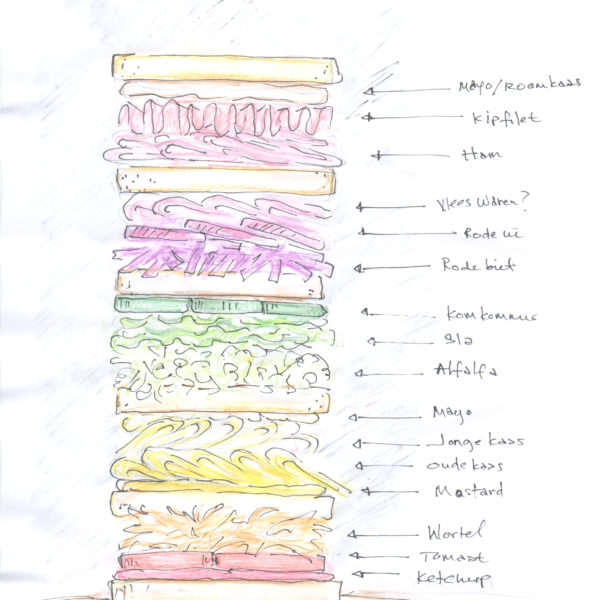 Mayo/Roomkaas
Kipfilet
Ham
Vlees waren?
Rode ui
Rode biet
Komkommer
Sla
Alfalfa
Mayo
Jonge kaas
Oude kaas
Mostard
Wortel
Tomaat
Ketchup